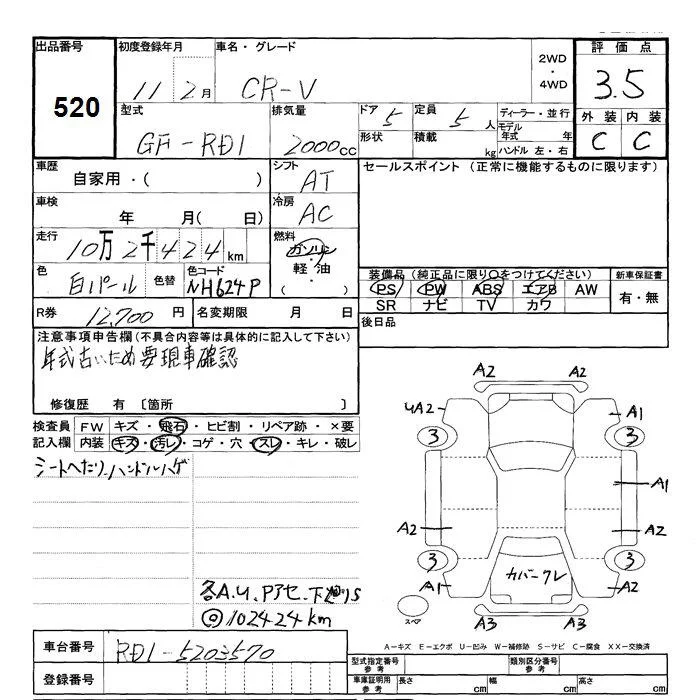 出品番号 初度登録年月 車名・グレード 2WD ・ 4WD 評価点
520 11 2月 CR-V 3.5
型式 排気量 ドア 5 定員 5人 ディーラー・並行 外装 内装
GF-RD1 2000cc 形状 積載 kg モデル年式 年 C C
ハンドル 左・右
車歴 シフト セールスポイント (正常に機能するものに限ります)
自家用・( ) AT
車検 冷房
年 月( 日) AC
走行 燃料
10万2千424km ガソリン
軽・油
( )
色 色替 色コード 装備品 (純正品に限り○をつけてください) 新車保証書
白パール NH624P PS PW ABS エアB AW 有・無
SR ナビ TV カワ
R券 12,700円 名変期限 月 日 後日品
注意事項申告欄 (不具合内容等は具体的に記入して下さい)
年式古いため要現車確認
修復歴 有 〔箇所 〕
検査員 FW キズ・飛石・ヒビ割・リペア跡・×要
記入欄 内装 キズ・汚レ・コゲ・穴・スレ・キレ・破レ
シートへたり、ハンドルハゲ
A2 A2
4A2 A1
3 3
A1
A2 A2
3 3
A1 カバークレ A2
スペア A3 A3
各A.U.Pアセ.下廻りS
◎102424km
A-キズ E-エクボ U-凹み W-補修跡 S-サビ C-腐食 XX-交換済
車台番号 RD1-5203570
登録番号
型式指定番号 参考 類別区分番号 参考
車庫証明用 参考 長さ cm 幅 cm 高さ cm